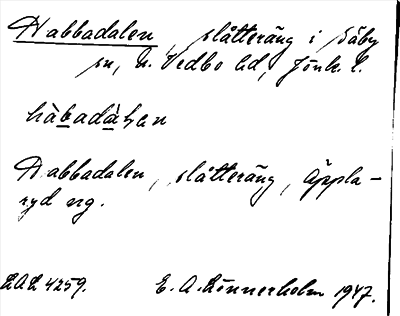 Habbadalen, slåtteräng i Säby
sn, N. Vedbo hd, Jönk. l.
hàbadàhen
Habbadalen, slåtteräng, Äppla-
ryd ng.
EAL 4259. E. A. Lönnerholm 1947.